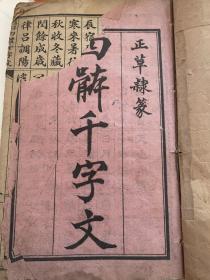 正草隸篆
四體千字文
辰宿
寒來暑
秋收冬藏
閏餘成歲
律呂調陽